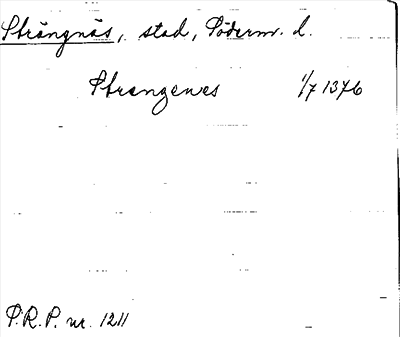 Strängnäs, stad, Söderm. l.
Strengenes 1/7 1376
S.R.P. nr. 1211